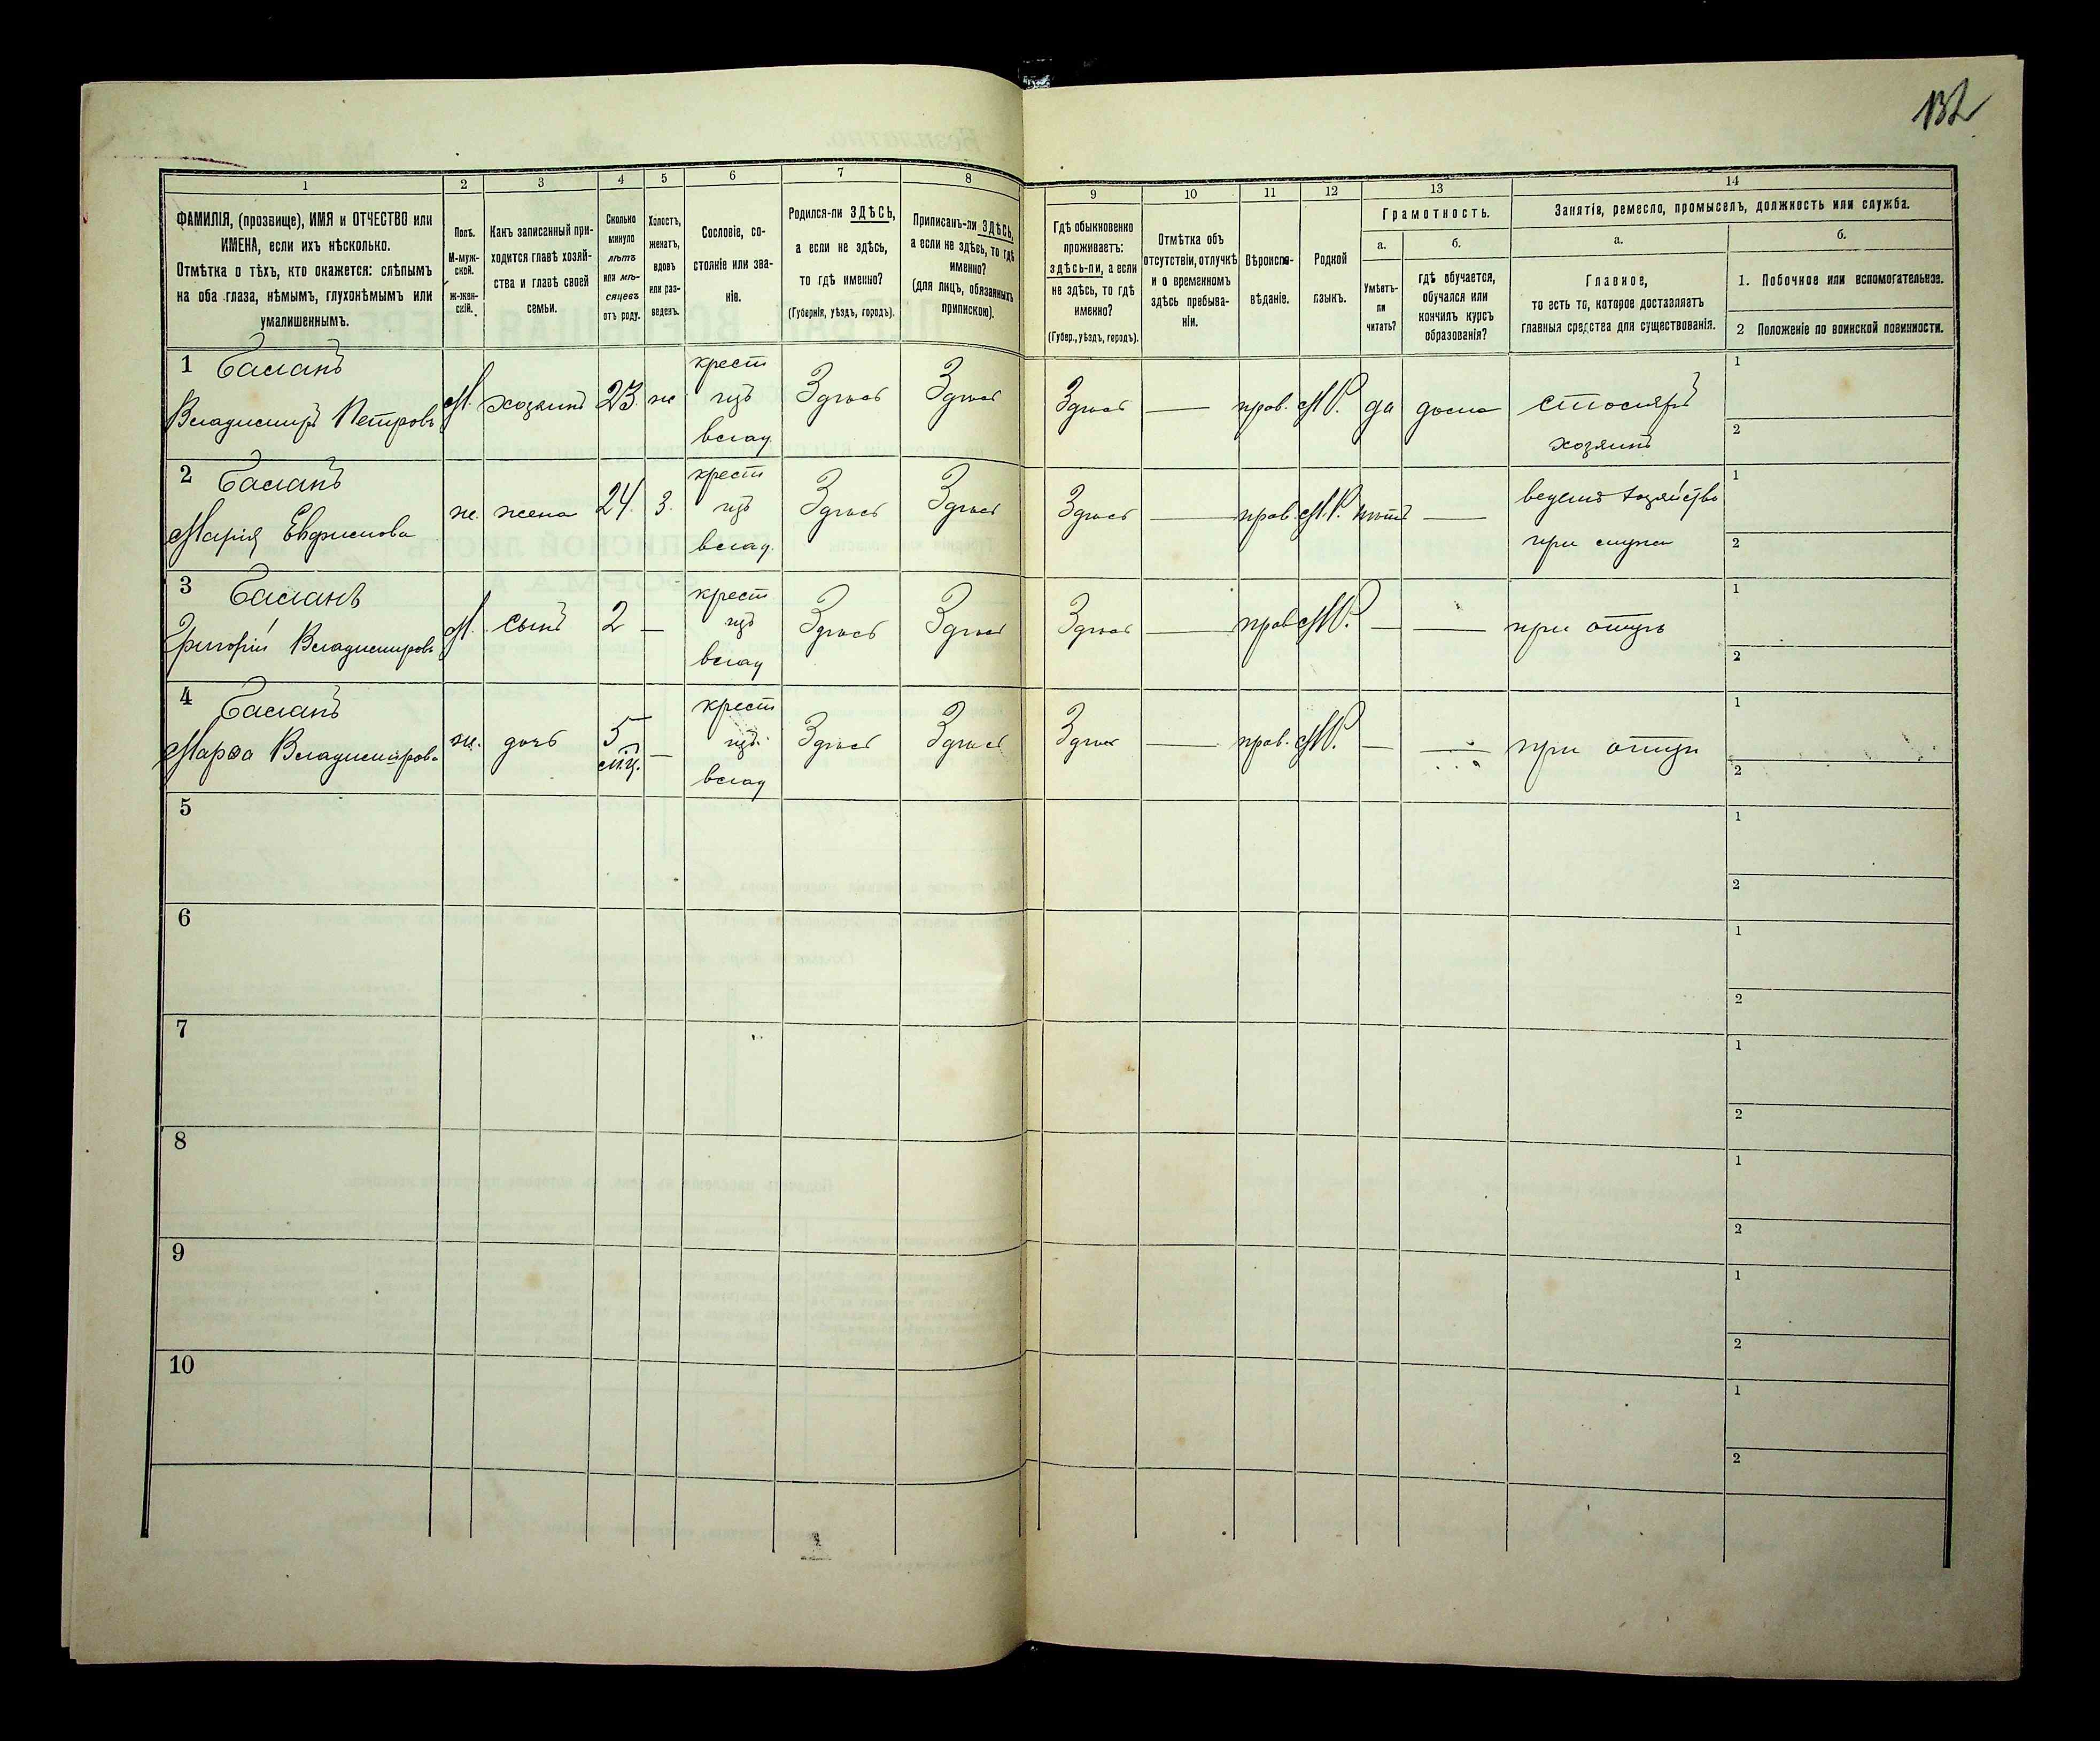 132
1 2 3 4 5 6 7 8 9 10 11 12 13 14
ФАМИЛІЯ, (прозвище), ИМЯ и ОТЧЕСТВО или
ИМЕНА, если ихъ нѣсколько.
Отмѣтка о тѣхъ, кто окажется: слѣпымъ
на оба глаза, нѣмымъ, глухонѣмымъ или
умалишеннымъ.
Полъ.
М-муж-
ской.
ж-жен-
скій.
Какъ записанный при-
ходится главѣ хозяй-
ства и главѣ своей
семьи.
Сколько
минуло
лѣтъ
или мѣ-
сяцевъ
отъ роду.
Холостъ,
женатъ,
вдовъ
или раз-
веденъ.
Сословіе, со-
стояніе или зва-
ніе.
Родился-ли ЗДѢСЬ,
а если не здѣсь,
то гдѣ именно?
(Губернія, уѣздъ, городъ).
Приписанъ-ли ЗДѢСЬ,
а если не здѣсь, то гдѣ
именно?
(для лицъ, обязанныхъ
припискою).
Гдѣ обыкновенно
проживаетъ:
здѣсь-ли, а если
не здѣсь, то гдѣ
именно?
(Губер., уѣздъ, городъ).
Отмѣтка объ
отсутствіи, отлучкѣ
и о временномъ
здѣсь пребыва-
ніи.
Вѣроиспо-
вѣданіе.
Родной
языкъ.
Грамотность.
а.
б.
Умѣетъ-
ли
читать?
гдѣ обучается,
обучался или
кончилъ курсъ
образованія?
Занятіе, ремесло, промыселъ, должность или служба.
а.
б.
Главное,
то есть то, которое доставляетъ
главныя средства для существованія.
1. Побочное или вспомогательное.
2 Положеніе по воинской повинности.
1 Басланъ
Владимиръ Петровъ
М. хозяинъ 23. ж.
крест
изъ
влад
Здѣсь Здѣсь Здѣсь — прав. М.Р. да дома столяръ
хозяинъ
1
2
2 Басланъ
Марія Евфимова
ж. жена 24. З.
крест
изъ
влад.
Здѣсь Здѣсь Здѣсь — прав. М.Р. нѣтъ —
при мужѣ
1
2
3 Басланъ
Григорій Владимировъ
М. сынъ 2 —
крест
изъ
влад
Здѣсь Здѣсь Здѣсь — прав М.Р. — — при отцѣ
1
2
4 Басланъ
Марѳа Владимирова
ж. дочь 5 —
м.ц.
крест
изъ
влад
Здѣсь Здѣсь Здѣсь — прав. М.Р. — — при отцѣ
1
2
5
1
2
6
1
2
7
1
2
8
1
2
9
1
2
10
1
2